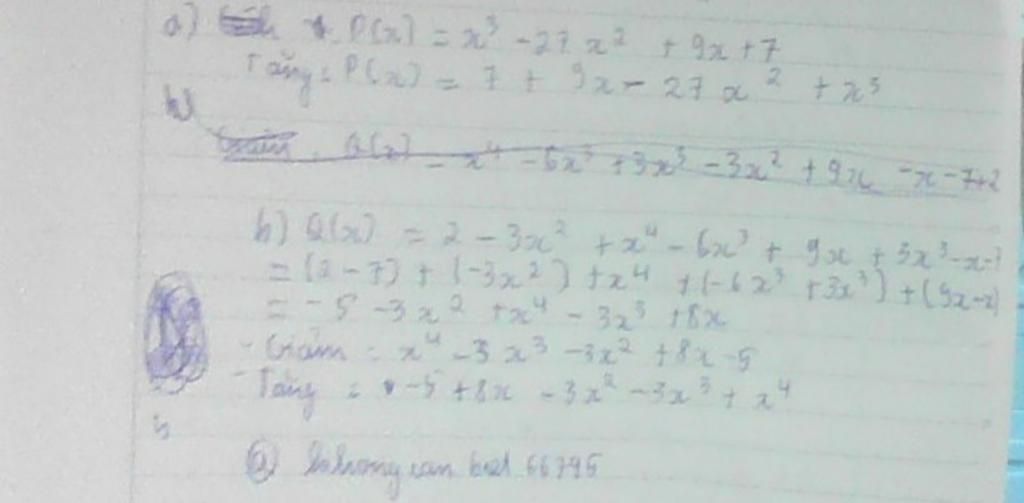 a) P(x) = x³ - 27x² + 9x + 7
Tăng: P(x) = 7 + 9x - 27x² + x³
b)
Giảm: Q(x) = x⁴ - 6x³ + 3x³ - 3x² + 9x - x - 7 + 2
b) Q(x) = 2 - 3x² + x⁴ - 6x³ + 9x + 3x³ - x - 7
= (2 - 7) + (-3x²) + x⁴ + (-6x³ + 3x³) + (9x - x)
= -5 - 3x² + x⁴ - 3x³ + 8x
- Giảm = x⁴ - 3x³ - 3x² + 8x - 5
- Tăng = -5 + 8x - 3x² - 3x³ + x⁴